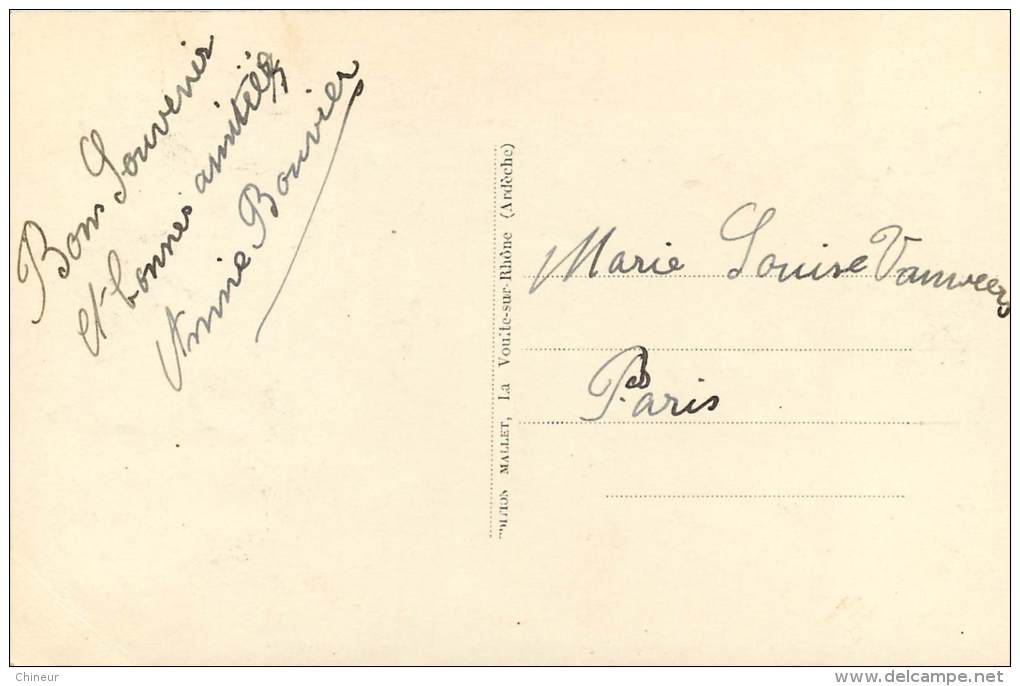 Bons Souvenir
et bonnes amitiés
Annie Bouvier
EDITION MALLET, La Voulte-sur-Rhône (Ardèche)
Marie Louise
Paris
Chineur
delcampe.net